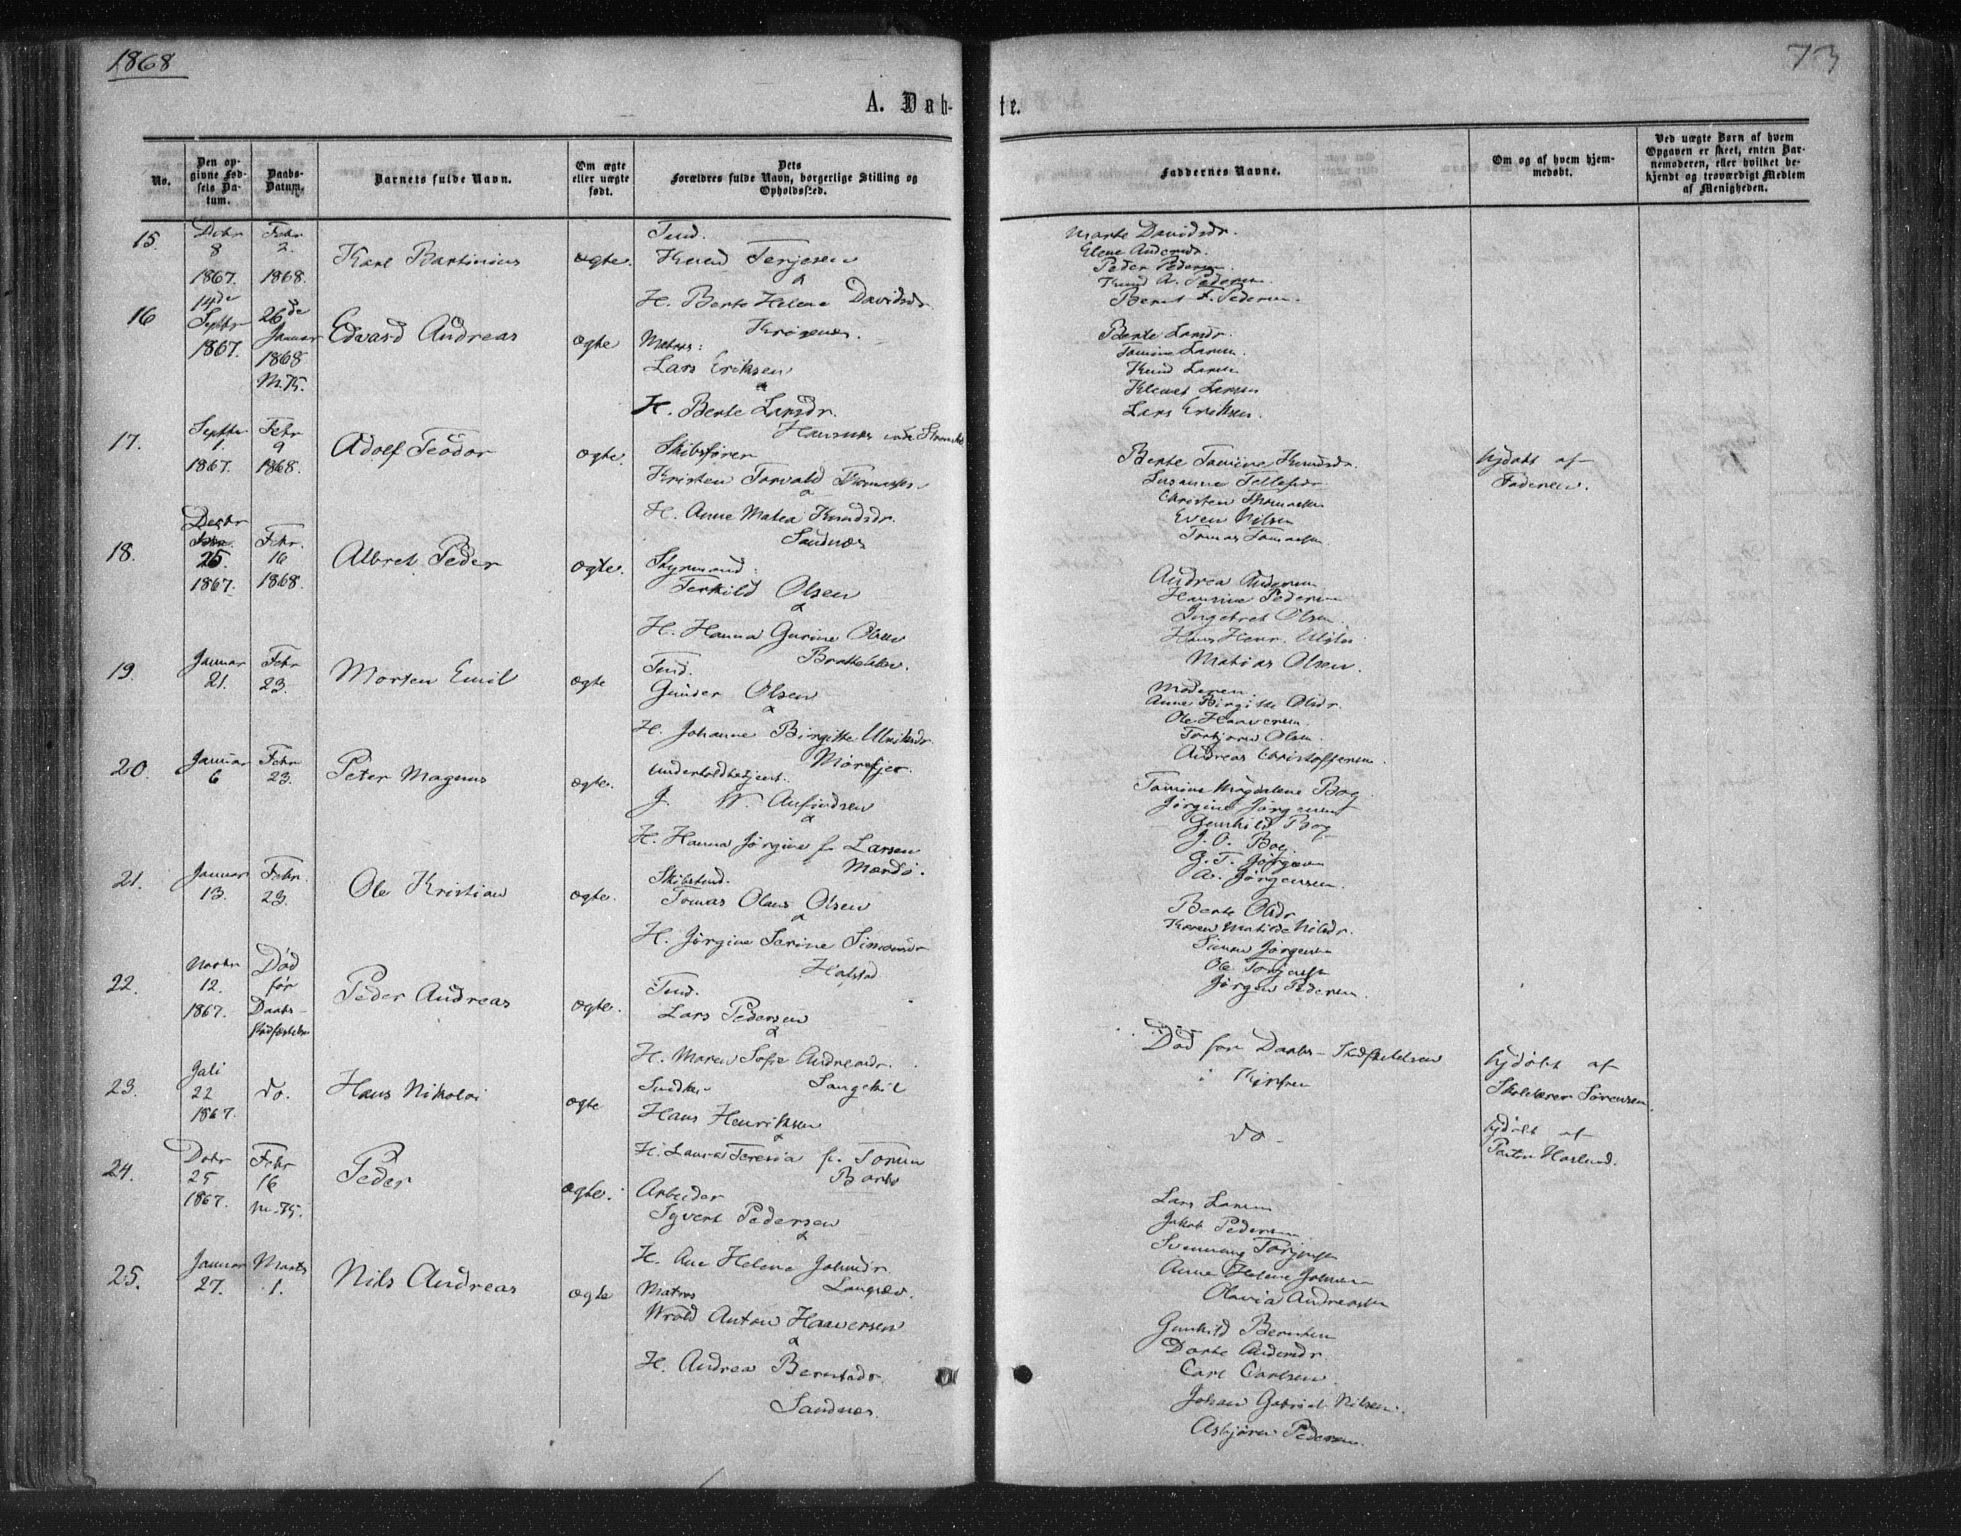 1868
73
A. Døb-
te.
No.
Den op-
givne Fød-
sels Da-
tum.
Daabs-
Datum.
Barnets fulde Navn.
Om ægte
eller uægte
født.
Dets
Forældres fulde Navn, borgerlige Stilling og
Opholdssted.
Faddernes Navne.
Om og af hvem hjem-
medøbt.
Ved uægte Barn af hvem
Opgaven er skeet, enten Bar-
nemoderen, eller hvilket be-
kjendt og troværdigt Medlem
af Menigheden.
15.
8
1867.
Febr
2.
1868.
Karl Bartinius
ægte.
Knud Terjesen
&
H. Berte Helene Davidsdr.
Marte Davidsdr.
Peder Pedersen
Knud A. Pedersen
16
14de
Septbr
1867.
26de
Januar
1868
M.K.
Edvard Andreas
ægte
Matros:
Lars Eriksen
&
H. Berte Larsdr.
Berte Larsdr.
Tomine Larsen
Knud Larsen
Lars Eriksen.
17.
Septbr
1.
1867.
Febr
9
1868.
Adolf Teodor
ægte.
Skibsfører
Kristen Torvald Tomassen
&
H. Anne Matea Knudsdr.
Sandnæs
Berte Tomine Knudsdr.
Susanne Tellefsdr
Even Nilsen
Tomas Tomassen
hjdøbt af
Faderen.
18.
Decbr
25.
1867.
Febr.
16
1868.
Albret Peder
ægte.
Styrmand:
Terkild Olsen
&
H. Hanna Gurine Olsen
Andrea Andersen
Hansine Pedersen
Ingebret Olsen
Matias Olsen.
19.
Januar
21.
Febr
23.
Morten Emil
ægte
Gunder Olsen
&
H. Johanne Birgitte Ulriksdr.
Mørefjær.
Moderen.
Anne Birgitte Olsdr.
Ole Haaversen.
Torbjørn Olsen
Andreas Christoffersen.
20.
Januar
6
Febr
23.
Peter Magnus
ægte.
J. W. Anfindsen
&
H. Hanna Jørgine f. Larsen
Mærdø.
Tomine Magdalene Boe
Jørgine Jørgensen
Gunhild Boe
J. O. Boe
G. T. Jørgensen
A. Jørgensen.
21.
Januar
13.
Febr.
23.
Ole Kristian
ægte.
Tomas Olaus Olsen
&
H. Jørgine Serine Simonsdr
Berte Olsdr
Karen Matilde Nilsdr.
Simon Jørgensen
Ole Torjusen
Jørgen Pedersen.
22.
12.
1867.
Død
før
Daabs-
stadfæstelse
Peder Andreas
ægte.
Lars Pedersen
&
H. Maren Sofie Andreasdr.
Død før Daabs-Stadfæstelsen
i Kirken
hjdøbt af
Skolelærer Sørensen.
23.
Juli
22
1867.
do.
Hans Nikolai
ægte
Hans Henriksen
&
H. Laura Teresia f.
do -
hjdøbt af
Pastor Haslund.
24.
25
1867.
Febr
16
M.K.
Peder
ægte.
Arbeider
Syvert Pedersen
&
H. Ane Helene Johnsdr.
Langsæv.
Lars Larsen
Jakob Pedersen
Svennung Torjusen
Anne Helene Johnsen
Olavia Andreassen
25.
Januar
27.
Marts
1.
Nils Andreas
ægte
Matros
Wrold Anton Haaversen
&
H. Andrea Berntsdr.
Sandnæs.
Gunhild Berntsen
Dorte Andersdr.
Carl Carlsen
Johan Gabriel Nilsen.
Asbjørn Pedersen.